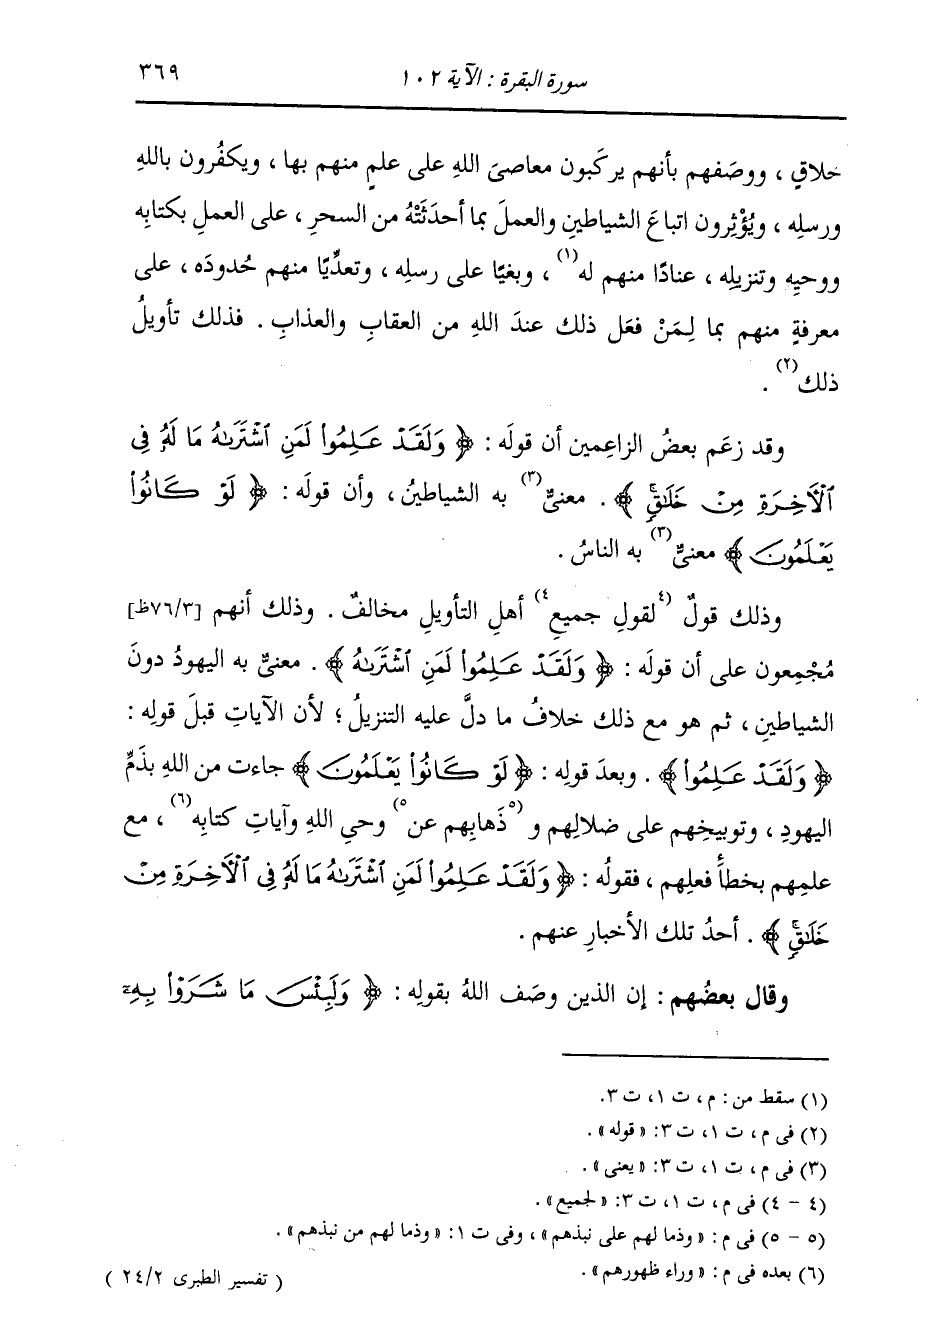 سورة البقرة : الآية ١٠٢
٣٦٩
خلاقٍ ، ووصَفهم بأنهم يركَبون معاصىَ اللهِ على علمٍ منهم بها ، ويكفُرون باللهِ
ورسلِه ، ويُؤْثِرون اتباعَ الشياطينِ والعملَ بما أحدَثَتْهُ من السحرِ ، على العملِ بكتابِه
ووحيِه وتنزيلِه ، عنادًا منهم له(١) ، وبغيًا على رسلِه ، وتعدِّيًا منهم حُدودَه ، على
معرفةٍ منهم بما لِمَنْ فعَل ذلك عندَ اللهِ من العقابِ والعذابِ . فذلك تأويلُ
ذلك(٢) .
وقد زعَم بعضُ الزاعِمين أن قولَه : ﴿ وَلَقَدْ عَلِمُوا۟ لَمَنِ ٱشْتَرَىٰهُ مَا لَهُۥ فِى
ٱلْـَٔاخِرَةِ مِنْ خَلَٰقٍۚ ﴾ . معنىٌّ(٣) به الشياطينُ ، وأن قولَه : ﴿ لَوْ كَانُوا۟
يَعْلَمُونَ ﴾ معنىٌّ(٣) به الناسُ .
وذلك قولٌ (٤لقولِ جميعِ٤) أهلِ التأويلِ مخالفٌ . وذلك أنهم [٧٦/٣ظ]
مُجْمِعون على أن قولَه : ﴿ وَلَقَدْ عَلِمُوا۟ لَمَنِ ٱشْتَرَىٰهُ ﴾ . معنىٌّ به اليهودُ دونَ
الشياطينِ ، ثم هو مع ذلك خلافُ ما دلَّ عليه التنزيلُ ؛ لأن الآياتِ قبلَ قولِه :
﴿ وَلَقَدْ عَلِمُوا۟ ﴾ . وبعدَ قولِه : ﴿ لَوْ كَانُوا۟ يَعْلَمُونَ ﴾ جاءت من اللهِ بذَمِّ
اليهودِ ، وتوبيخِهم على ضلالِهم و (٥ذَهابِهم عن٥) وحىِ اللهِ وآياتِ كتابِه(٦) ، مع
علمِهم بخطأَ فعلِهم ، فقولُه : ﴿ وَلَقَدْ عَلِمُوا۟ لَمَنِ ٱشْتَرَىٰهُ مَا لَهُۥ فِى ٱلْـَٔاخِرَةِ مِنْ
خَلَٰقٍۚ ﴾ . أحدُ تلك الأخبارِ عنهم .
وقال بعضُهم : إن الذين وصَف اللهُ بقولِه : ﴿ وَلَبِئْسَ مَا شَرَوْا۟ بِهِۦٓ
(١) سقط من : م ، ت ١ ، ت ٣.
(٢) فى م ، ت ١ ، ت ٣: « قوله » .
(٣) فى م ، ت ١ ، ت ٣: « يعنى » .
(٤ - ٤) فى م ، ت ١ ، ت ٣: « لجميع » .
(٥ - ٥) فى م : « وذما لهم على نبذهم » ، وفى ت ١: « وذما لهم من نبذهم » .
(٦) بعده فى م : « وراء ظهورهم » .
( تفسير الطبرى ٢٤/٢ )